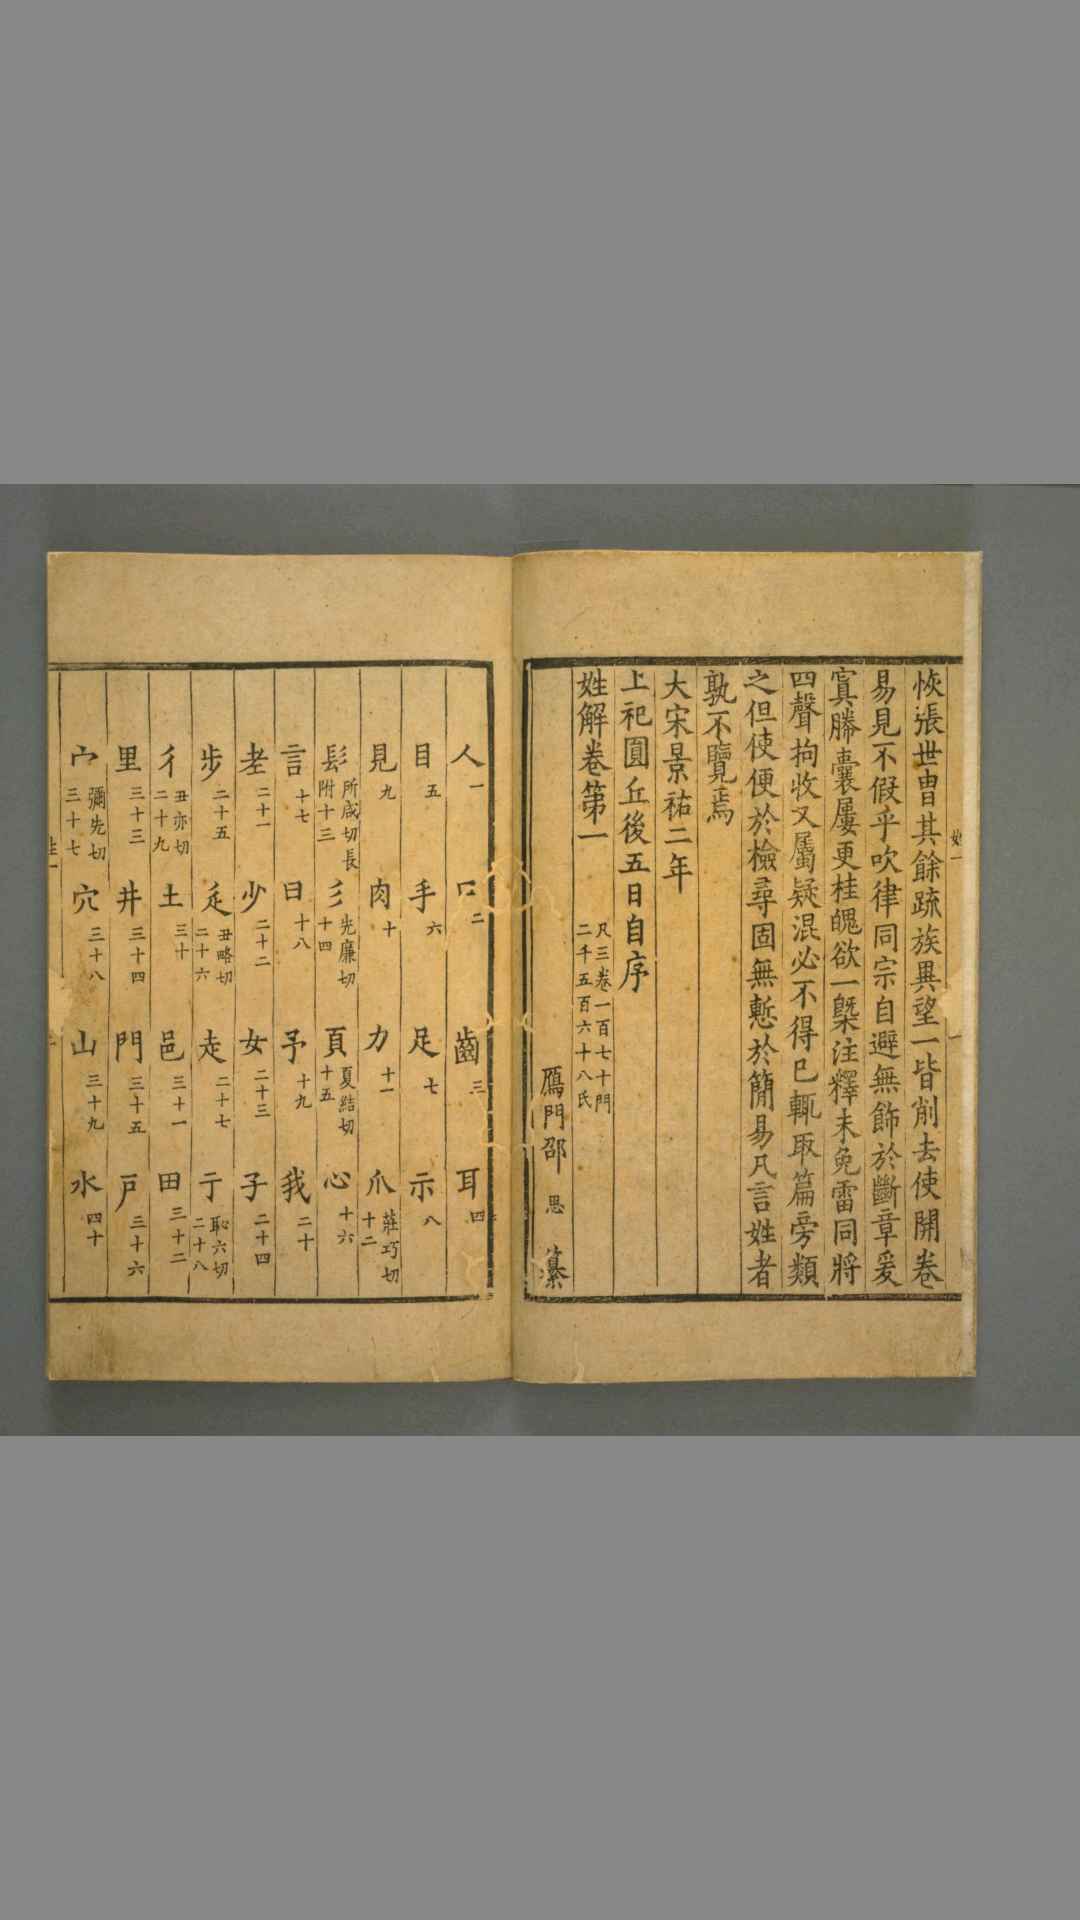 恢張世曹其餘疏族異望一皆削去使開卷
易見不假乎吹律同宗自避無飾於斷章爰
寘縢囊屢更桂魄欲一槩注釋未免雷同將
四聲拘收又屬疑混必不得已輒取篇旁類
之但使便於檢尋固無慙於簡易凡言姓者
孰不覽焉
大宋景祐二年
上祀圓丘後五日自序
姓解卷第一 凡三卷一百七十門
二千五百六十八氏
鴈門邵 思 纂
人一 口二 齒三 耳四
目五 手六 足七 示八
見九 肉十 力十一 爪莊巧切十二
髟所咸切長附十三 彡先廉切十四 頁夏結切十五 心十六
言十七 曰十八 予十九 我二十
老二十一 少二十二 女二十三 子二十四
步二十五 辵丑略切二十六 走二十七 亍恥六切二十八
彳丑亦切二十九 土三十 邑三十一 田三十二
里三十三 井三十四 門三十五 戶三十六
宀彌先切三十七 穴三十八 山三十九 水四十